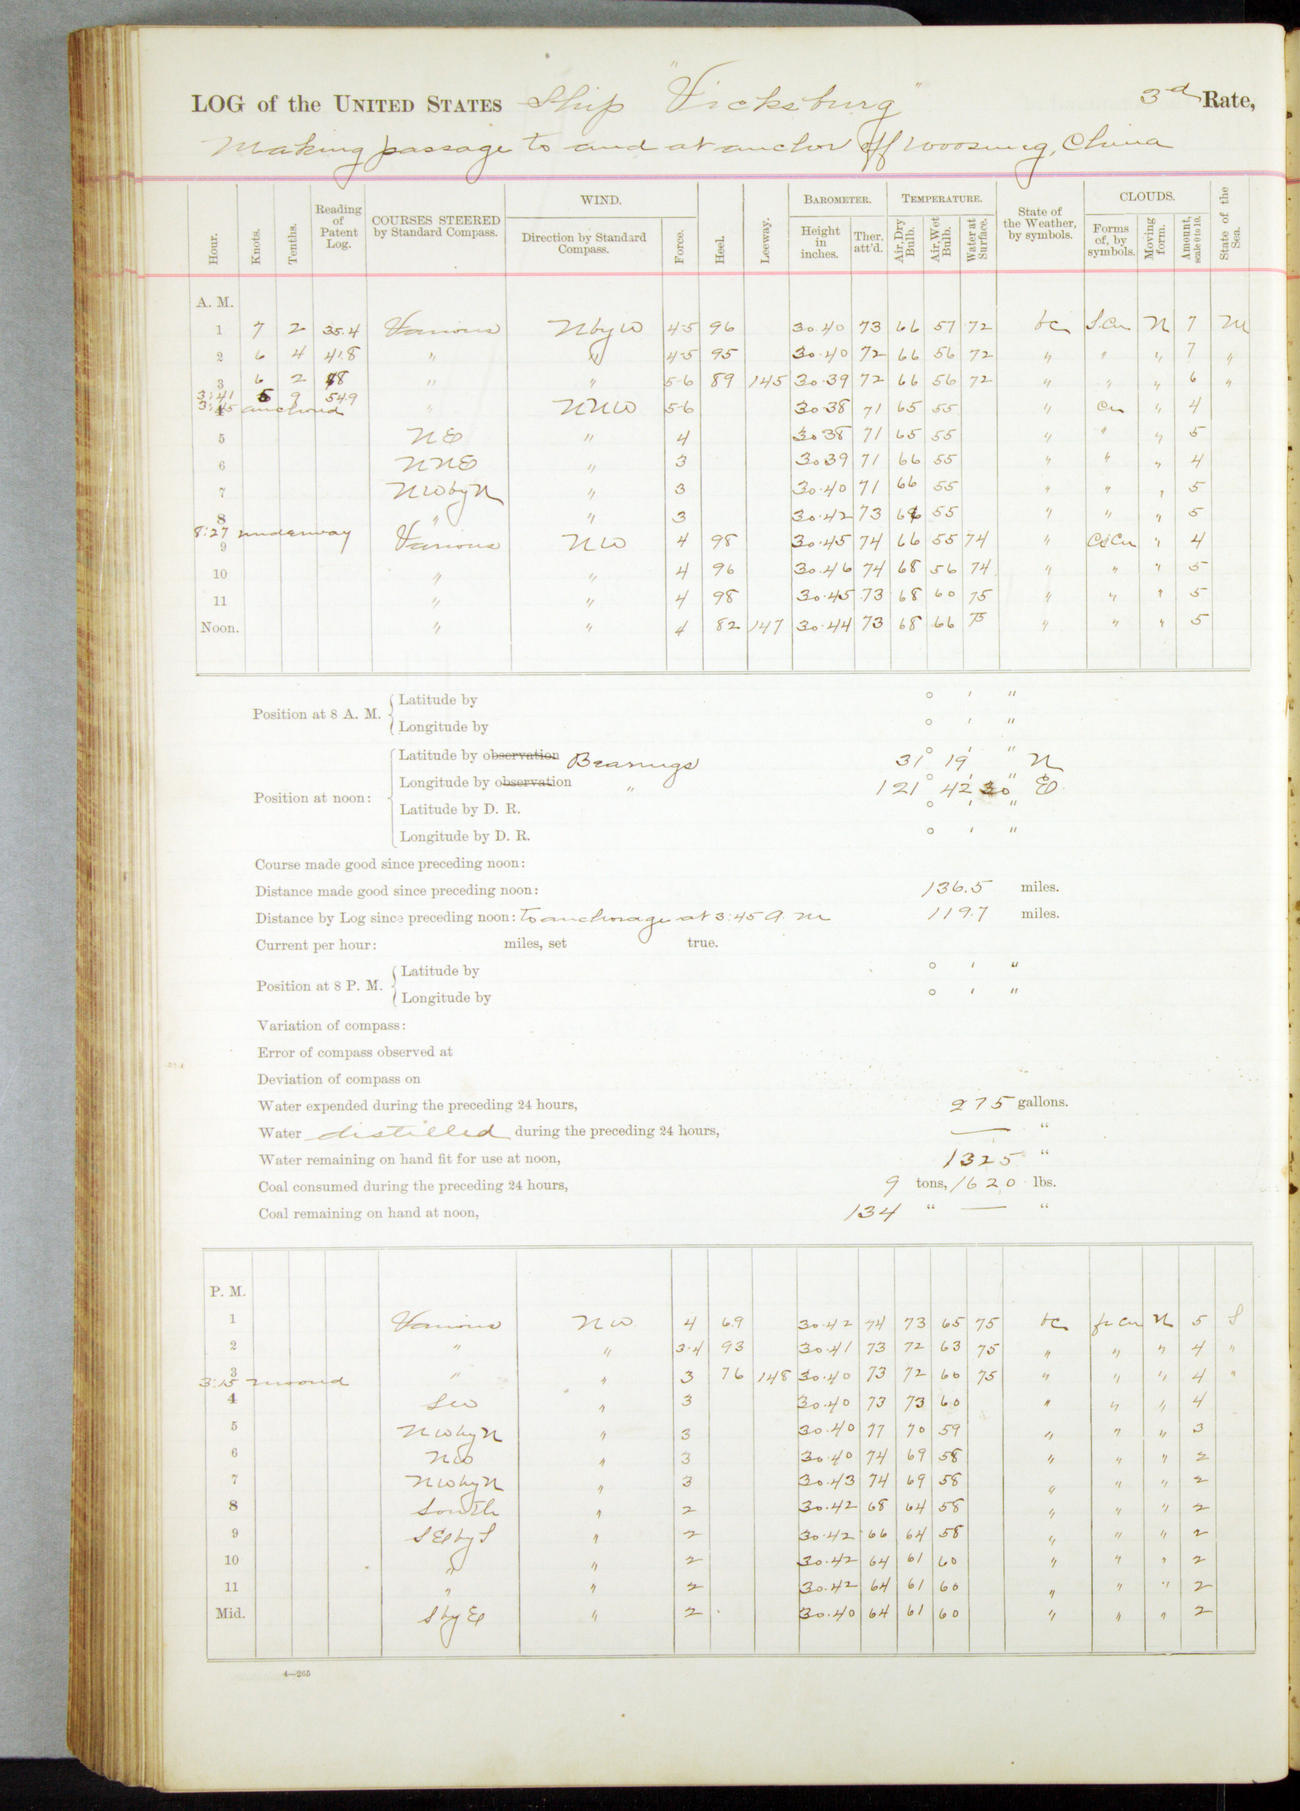 LOG of the UNITED STATES Ship "Vicksburg" 3d Rate,
Making passage to and at anchor off Woosung, China
Hour. Knots. Tenths. Reading of Patent Log. COURSES STEERED by Standard Compass. WIND. Direction by Standard Compass. Force. Heel. Leeway. BAROMETER. Height in inches. Ther. att'd. TEMPERATURE. Air, Dry Bulb. Air, Wet Bulb. Water at Surface. State of the Weather, by symbols. CLOUDS. Forms of, by symbols. Moving form. Amount, scale 0 to 10. State of the Sea.
A. M.
1 7 2 35.4 Various N by W 4-5 96 30.40 73 66 57 72 bc S.Cu N 7 M
2 6 4 41.8 " " 4-5 95 30.40 72 66 56 72 " " " 7 "
3 6 2 48 " " 5-6 89 145 30.39 72 66 56 72 " " " 6 "
3:41 5 9 54.9
3:45 anchored
4 " NNW 5-6 30.38 71 65 55 " Cu " 4
5 NE " 4 30.38 71 65 55 " " " 5
6 NNE " 3 30.39 71 66 55 " " " 4
7 NW by N " 3 30.40 71 66 55 " " " 5
8 " " 3 30.42 73 66 55 " " " 5
8:27 underway
9 Various NW 4 98 30.45 74 66 55 74 " CsCu " 4
10 " " 4 96 30.46 74 68 56 74 " " " 5
11 " " 4 98 30.45 73 68 60 75 " " " 5
Noon. " " 4 82 147 30.44 73 68 66 75 " " " 5
Position at 8 A. M. Latitude by ° ′ ″
Longitude by ° ′ ″
Position at noon: Latitude by observation Bearings 31° 19′ ″ N
Longitude by observation " 121° 42′ 30″ E
Latitude by D. R. ° ′ ″
Longitude by D. R. ° ′ ″
Course made good since preceding noon:
Distance made good since preceding noon: 136.5 miles.
Distance by Log since preceding noon: to anchorage at 3:45 A. M 119.7 miles.
Current per hour: miles, set true.
Position at 8 P. M. Latitude by ° ′ ″
Longitude by ° ′ ″
Variation of compass:
Error of compass observed at
Deviation of compass on
Water expended during the preceding 24 hours, 275 gallons.
Water distilled during the preceding 24 hours, — "
Water remaining on hand fit for use at noon, 1325 "
Coal consumed during the preceding 24 hours, 9 tons, 1620 lbs.
Coal remaining on hand at noon, 134 " — "
P. M.
1 Various NW 4 69 30.42 74 73 65 75 bc fr Cu N 5 S
2 " " 3-4 93 30.41 73 72 63 75 " " " 4 "
3 " " 3 76 148 30.40 73 72 60 75 " " " 4 "
3:15 moored
4 SW " 3 30.40 73 73 60 " " " 4
5 NW by N " 3 30.40 77 70 59 " " " 3
6 NW " 3 30.40 74 69 58 " " " 2
7 NW by N " 3 30.43 74 69 58 " " " 2
8 South " 2 30.42 68 64 58 " " " 2
9 SE by S " 2 30.42 66 64 58 " " " 2
10 " " 2 30.42 64 61 60 " " " 2
11 " " 2 30.42 64 61 60 " " " 2
Mid. S by E " 2 30.40 64 61 60 " " " 2
4—265